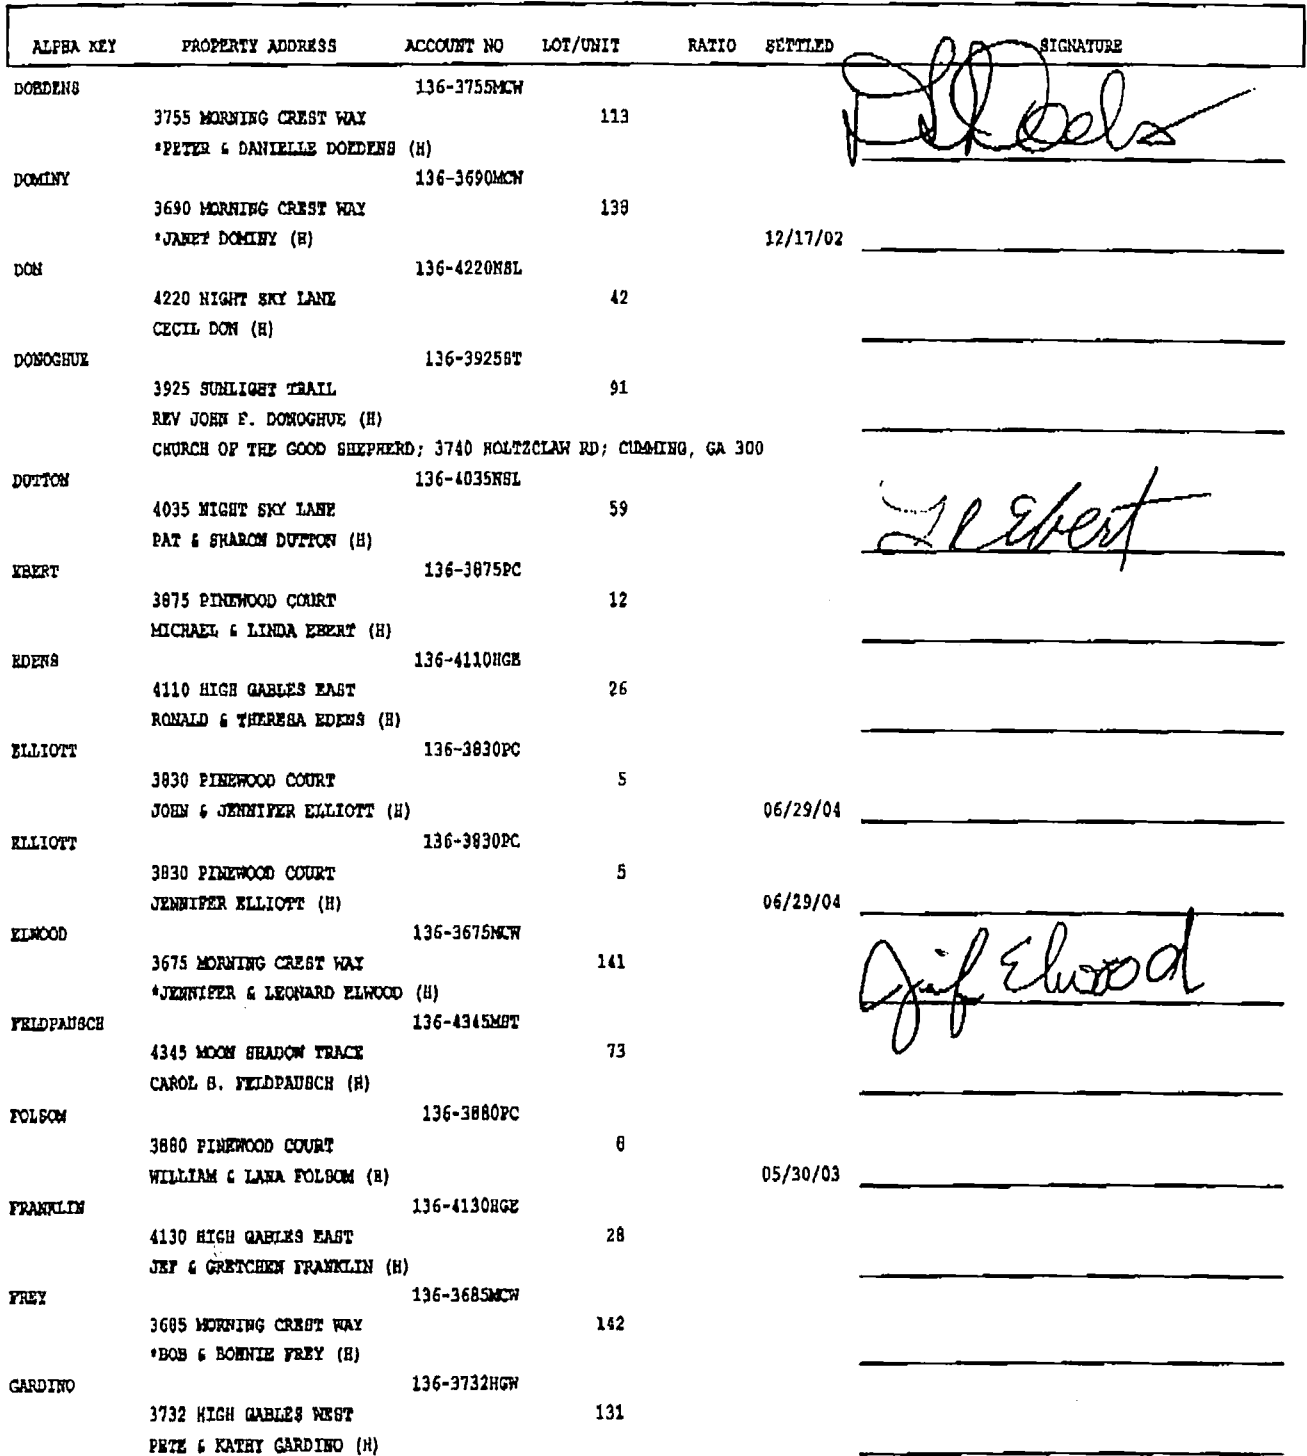 ALPHA KEY PROPERTY ADDRESS ACCOUNT NO LOT/UNIT RATIO SETTLED SIGNATURE
DOEDENS 136-3755MCW
3755 MORNING CREST WAY 113
*PETER & DANIELLE DOEDENS (H)
DOMINY 136-3690MCW
3690 MORNING CREST WAY 138
*JANET DOMINY (H) 12/17/02
DON 136-4220NSL
4220 NIGHT SKY LANE 42
CECIL DON (H)
DONOGHUE 136-3925ST
3925 SUNLIGHT TRAIL 91
REV JOHN F. DONOGHUE (H)
CHURCH OF THE GOOD SHEPHERD; 3740 HOLTZCLAW RD; CUMMING, GA 300
DUTTON 136-4035NSL
4035 NIGHT SKY LANE 59 Ebert
PAT & SHARON DUTTON (H)
EBERT 136-3875PC
3875 PINEWOOD COURT 12
MICHAEL & LINDA EBERT (H)
EDENS 136-4110HGE
4110 HIGH GABLES EAST 26
RONALD & THERESA EDENS (H)
ELLIOTT 136-3830PC
3830 PINEWOOD COURT 5
JOHN & JENNIFER ELLIOTT (H) 06/29/04
ELLIOTT 136-3830PC
3830 PINEWOOD COURT 5
JENNIFER ELLIOTT (H) 06/29/04
ELWOOD 136-3675MCW
3675 MORNING CREST WAY 141 Elwood
*JENNIFER & LEONARD ELWOOD (H)
FELDPAUSCH 136-4345MST
4345 MOON SHADOW TRACE 73
CAROL S. FELDPAUSCH (H)
FOLSOM 136-3880PC
3880 PINEWOOD COURT
WILLIAM & LANA FOLSOM (H) 05/30/03
FRANKLIN 136-4130HGE
4130 HIGH GABLES EAST 28
JEF & GRETCHEN FRANKLIN (H)
FREY 136-3685MCW
3685 MORNING CREST WAY 142
*BOB & BONNIE FREY (H)
GARDINO 136-3732HGW
3732 HIGH GABLES WEST 131
PETE & KATHY GARDINO (H)